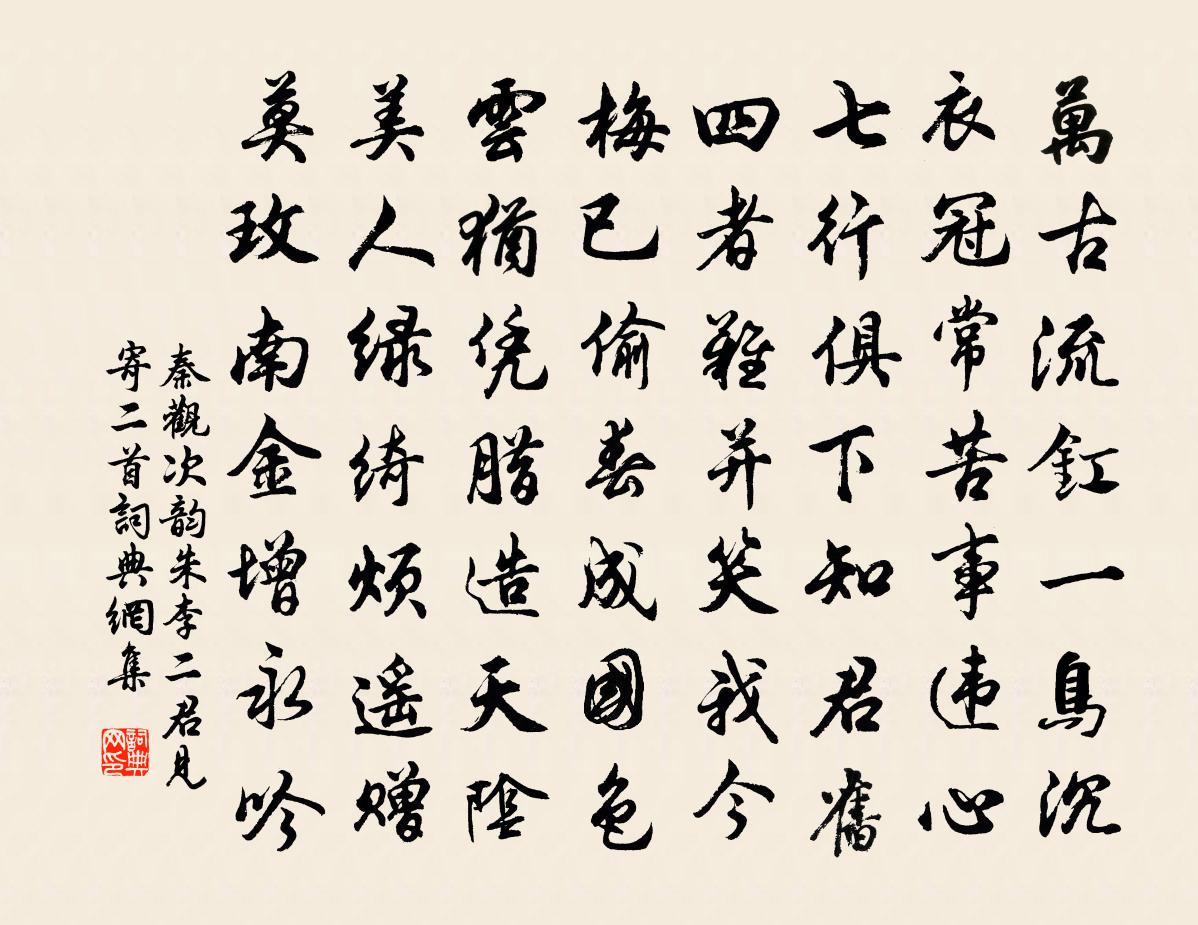 萬古流釭一鳥沉
衣冠常苦事违心
七行俱下知君舊
四者難并笑我今
梅已偷春成國色
雲猶凭腊造天陰
美人绿綺烦遥赠
莫玫南金增永吟
秦觀次韵朱李二君見
寄二首詞典網集
詞典网印